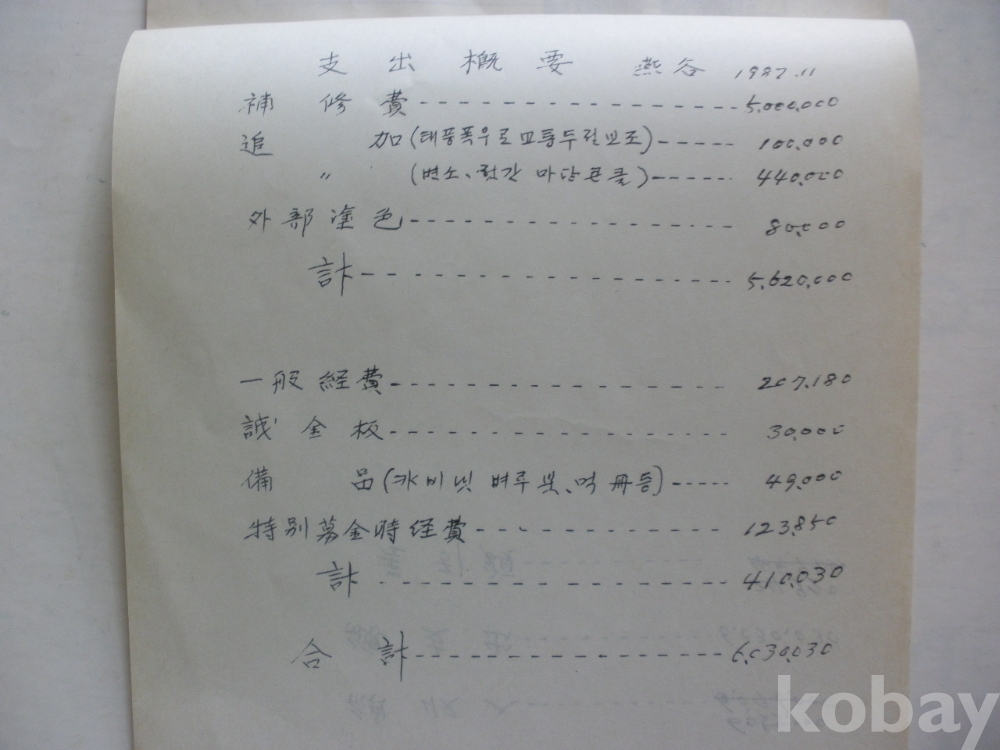 支出概要 燕谷 1987.11
補修費 5,000,000
追加(태풍폭우로 교통두절보조) 100,000
〃 (변소、헛간 마당콘클) 440,000
外部塗色 80,000
計 5,620,000
一般経費 207,180
誠金板 30,000
備品(캐비넷 벼루 붓、먹 冊등) 49,000
特別募金時経費 123,850
計 410,030
合計 6,030,030
kobay